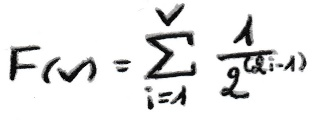 F(v) = \sum_{i=1}^{v} \frac{1}{2^{(2i-1)}}